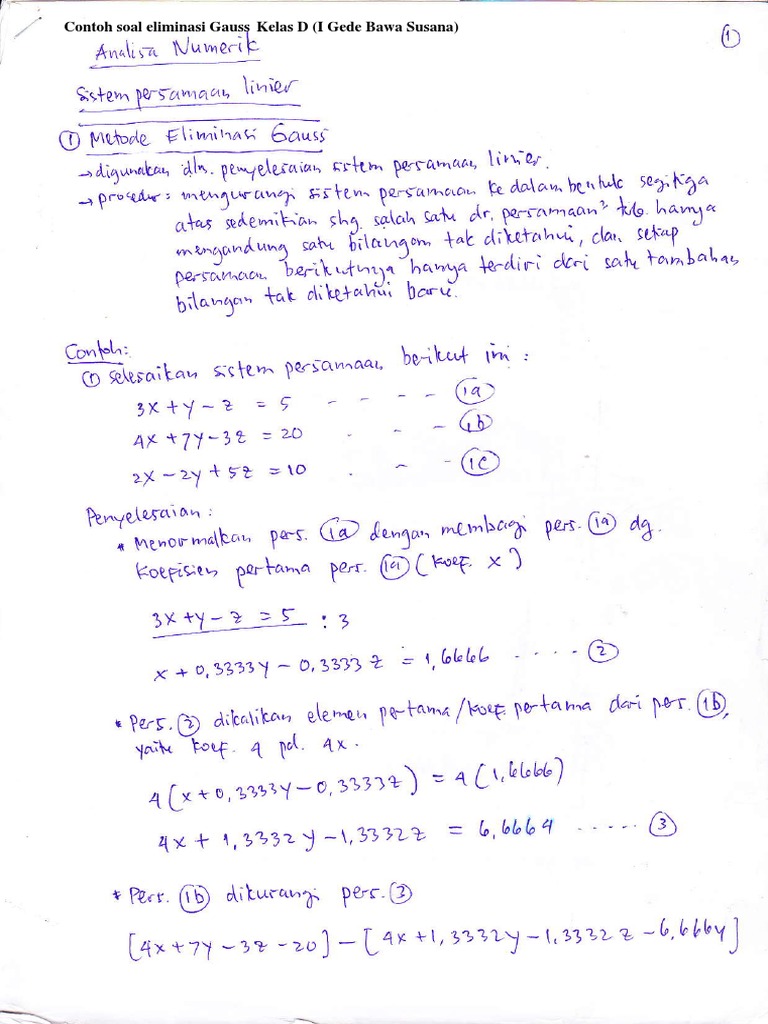 Contoh soal eliminasi Gauss Kelas D (I Gede Bawa Susana)
1
Analisa Numerik
Sistem persamaan linier
1 Metode Eliminasi Gauss
→ digunakan dlm. penyelesaian sistem persamaan linier.
→ prosedur: mengurangi sistem persamaan ke dalam bentuk segitiga
atas sedemikian shg. salah satu dr. persamaan² tsb. hanya
mengandung satu bilangan tak diketahui, dan setiap
persamaan berikutnya hanya terdiri dari satu tambahan
bilangan tak diketahui baru.
Contoh:
1 Selesaikan sistem persamaan berikut ini :
3x + y - z = 5 - - - - 1a
4x + 7y - 3z = 20 . - - 1b
2x - 2y + 5z = 10 . - - 1c
Penyelesaian :
* Menormalkan pers. 1a dengan membagi pers. 1a dg.
koefisien pertama pers. 1a (koef. x)
3x + y - z = 5 : 3
x + 0,3333y - 0,3333z = 1,6666 ..... 2
* Pers. 2 dikalikan elemen pertama/koef pertama dari pers. 1b,
yaitu koef. 4 pd. 4x.
4(x + 0,3333y - 0,3333z) = 4(1,6666)
4x + 1,3332y - 1,3332z = 6,6664 ..... 3
* Pers. 1b dikurangi pers. 3
[4x + 7y - 3z - 20] - [4x + 1,3332y - 1,3332z - 6,6664]